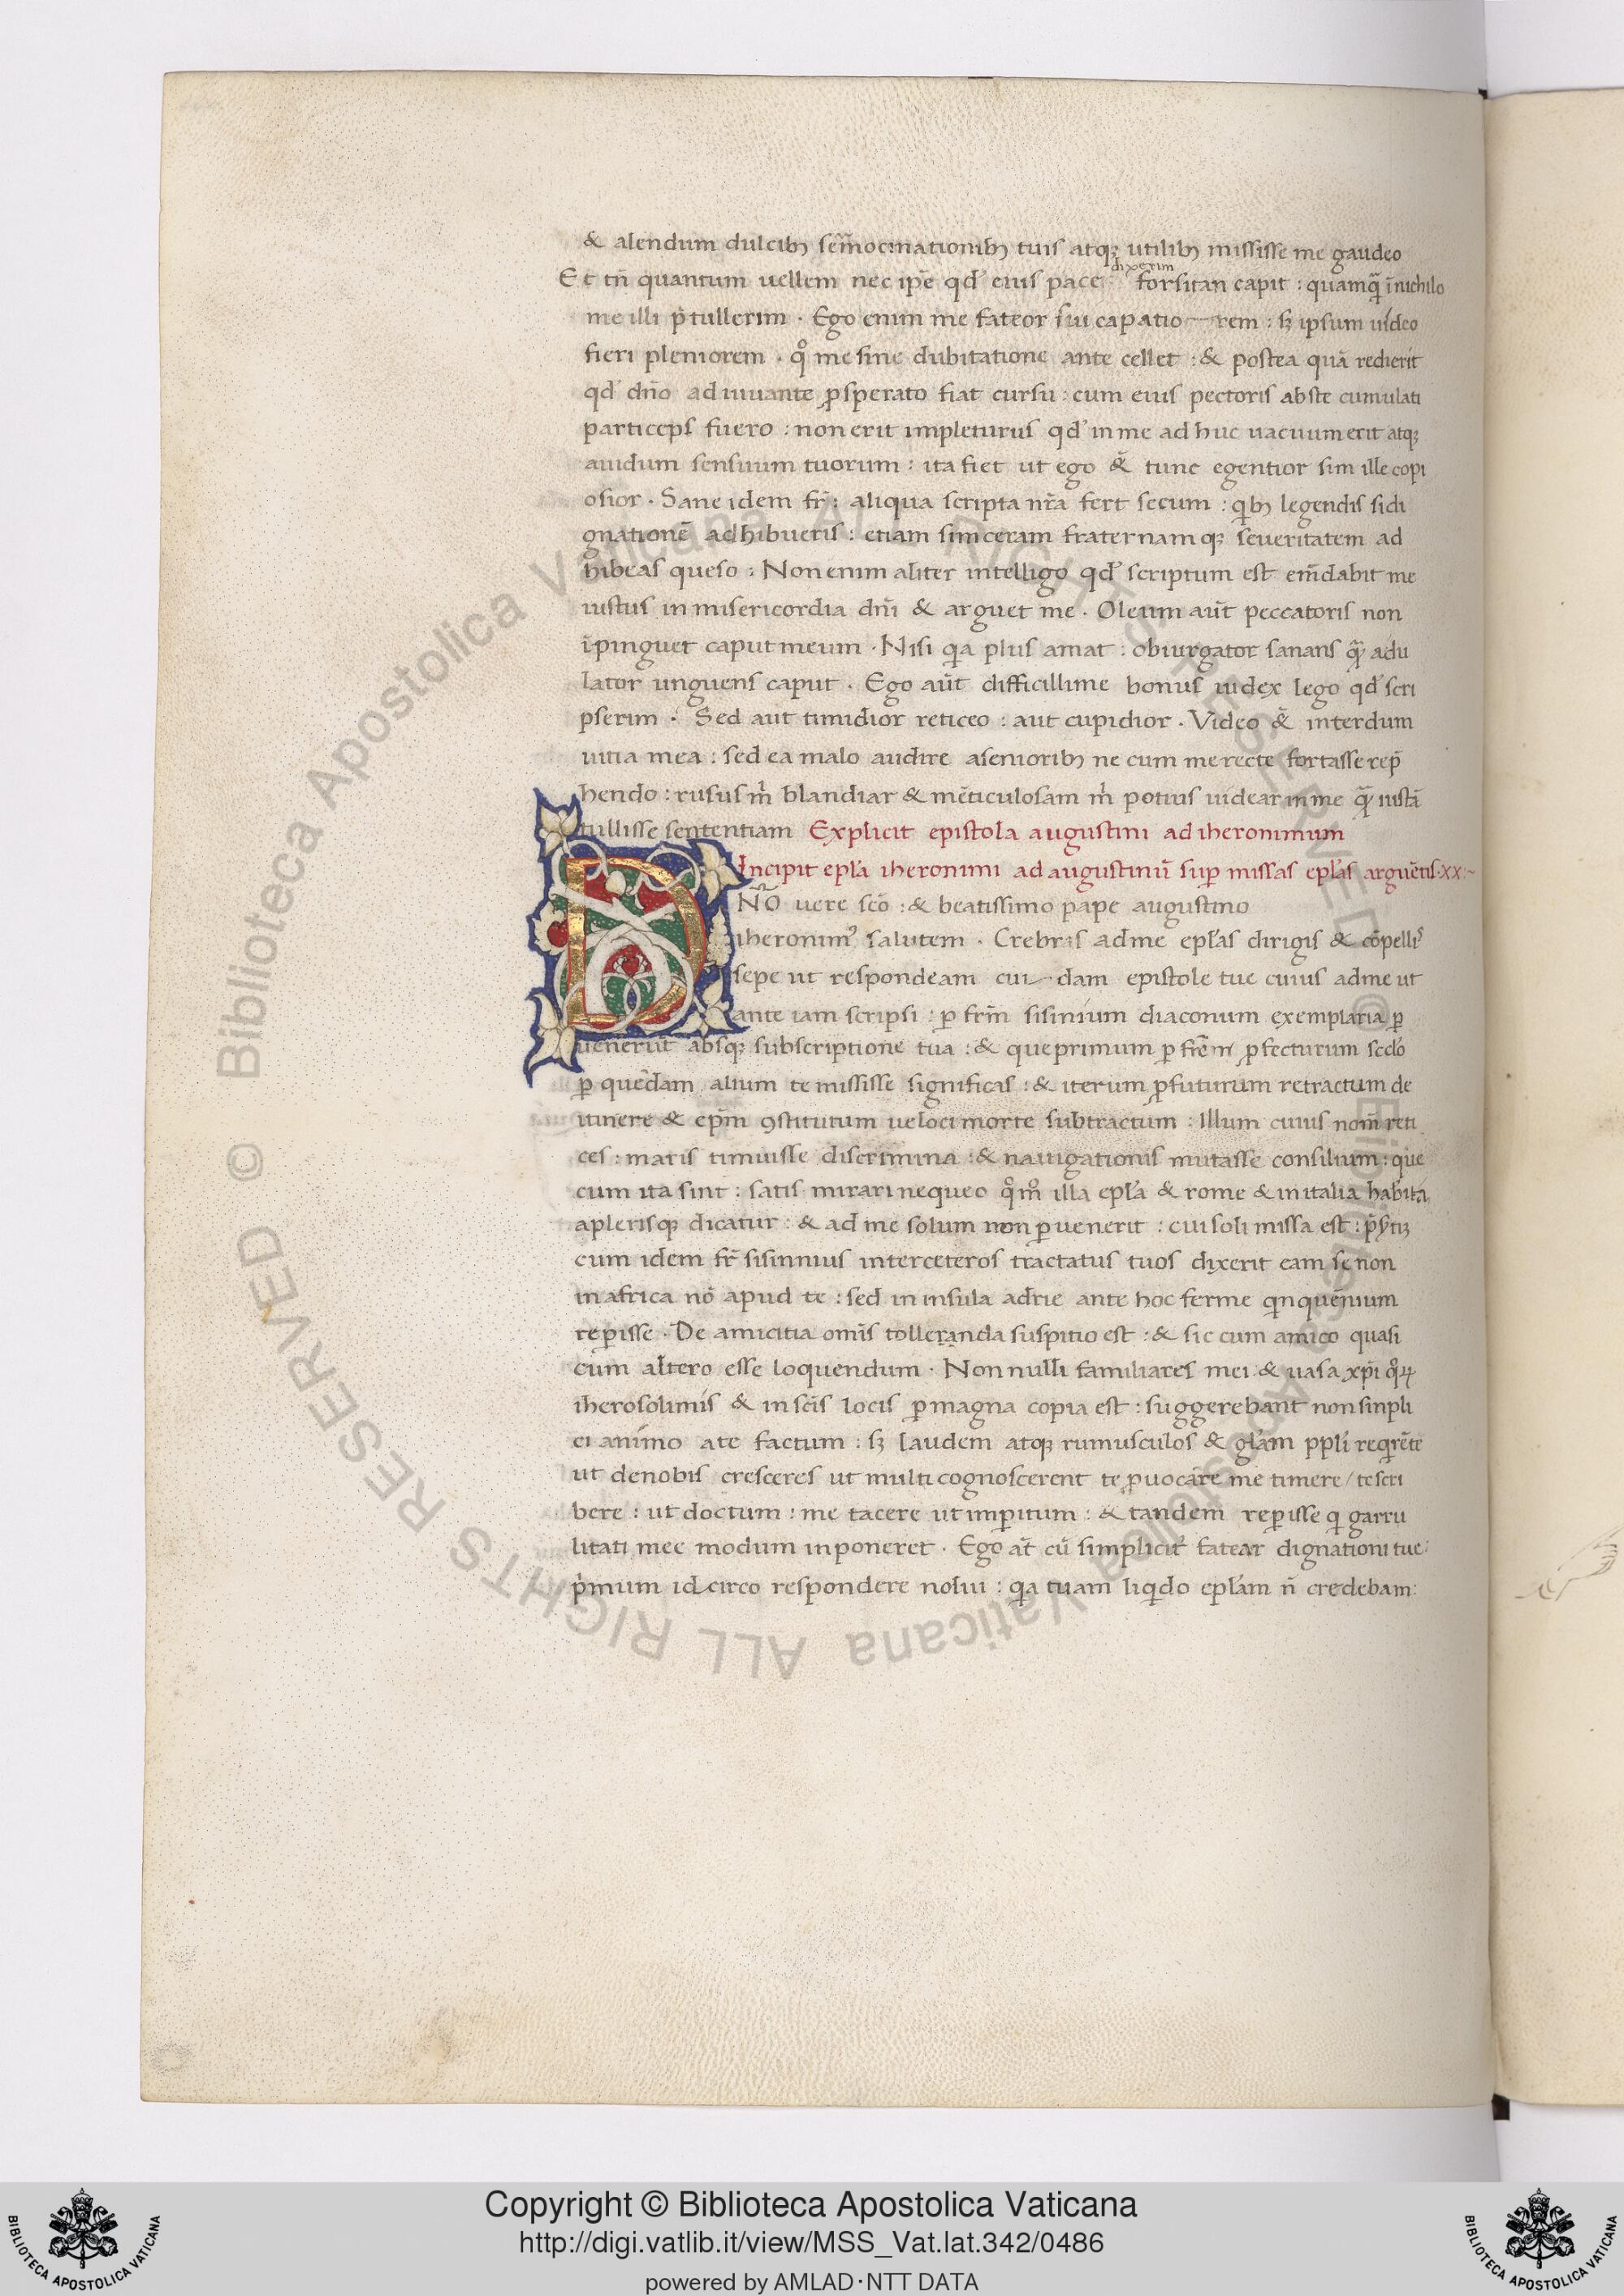 & alendum dulcibꝫ sem̃ocinationibꝫ tuis atqꝫ utilibꝫ mississe me gaudeo
dixerim
Et tñ quantum uellem nec ip̃e qđ eius pace forsitan capit : quamq̃ ĩ nichilo
me illi p̃tullerim · Ego enim me fateor sui capatio—rem : sꝫ ipsum uideo
fieri pleniorem · qͦ me sine dubitatione ante cellet : & postea quã redierit
qđ dño ad iuuante ꝓsperato fiat cursu : cum eius pectoris abste cumulati
particeps fuero : non erit impleturus qđ in me ad huc uacuum erit atqꝫ
auidum sensuum tuorum : ita fiet ut ego & tunc egentior sim ille copi
osior · Sane idem fr̃ : aliqua scripta nr̃a fert secum : qibꝫ legendis si di
gnationẽ adhibueris : etiam sinceram fraternam qꝫ seueritatem ad
hibeas queso : Non enim aliter intelligo qđ scriptum est em̃dabit me
iustus in misericordia dñi & arguet me · Oleum aũt peccatoris non
ĩpinguet caput meum · Nisi qia plus amat : obiurgator sanans q̃ adu
lator unguens caput · Ego aũt difficillime bonus iudex lego qđ scri
pserim · Sed aut timidior reticeo : aut cupidior · Video & interdum
uitia mea : sed ea malo audire asenioribꝫ ne cum me recte fortasse rep̃
hendo : rusus m̃ blandiar & mẽticulosam m̃ potius uidear in me q̃ iustã
tullisse sententiam Explicit epistola augustini ad iheronimum
Incipit epl̃a iheronimi ad augustinũ suꝑ missas epl̃as arguẽtis · xx :~
DÑO uere sc̃o : & beatissimo pape augustino
iheronimꝰ salutem · Crebras adme epl̃as dirigis & cõpellis
sepe ut respondeam cui—dam epistole tue cuius adme ut
ante iam scripsi : ꝑ fr̃m sisinium diaconum exemplaria ꝑ
uenerũt absqꝫ subscriptione tua : & que primum ꝑ frẽm ꝓfecturum scđo
ꝑ quedam alium te mississe significas : & iterum ꝓfuturum retractum de
itinere & ep̃m ꝯstitutum ueloci morte subtractum : Illum cuius nom̃ reti
ces : maris timuisse discrimina : & nauigationis mutasse consilium : que
cum ita sint : satis mirari nequeo qͦmͦ illa epl̃a & rome & in italia habita
aplerisqꝫ dicatur : & ad me solum non ꝑuenerit : cui soli missa est : p̃sꝫtiꝫ
cum idem fr̃ sisinnius interceteros tractatus tuos dixerit eam se non
in africa nõ apud te : sed in insula adrie ante hoc ferme qinquẽnium
reꝑisse · De amicitia omĩs tolleranda suspitio est : & sic cum amico quasi
cum altero esse loquendum · Non nulli familiares mei & uasa xp̃i qͦꝝ
iherosolimis & in sc̃is locis ꝑmagna copia est : suggerebant non sinpli
ci animo ate factum : sꝫ laudem atqꝫ rumusculos & gl̃am ppl̃i reqirẽte
ut denobis cresceres ut multi cognoscerent te ꝓuocare me timere / te scri
bere : ut doctum : me tacere ut imꝑitum : & tandem reꝑisse qi garru
litati mee modum inponeret · Ego aũt cũ simpliciṫ fatear dignationi tue :
p̃mum idcirco respondere nolui : qia tuam liqido epl̃am ñ credebam :
Copyright © Biblioteca Apostolica Vaticana
http://digi.vatlib.it/view/MSS_Vat.lat.342/0486
powered by AMLAD·NTT DATA
BIBLIOTECA APOSTOLICA VATICANA
BIBLIOTECA APOSTOLICA VATICANA